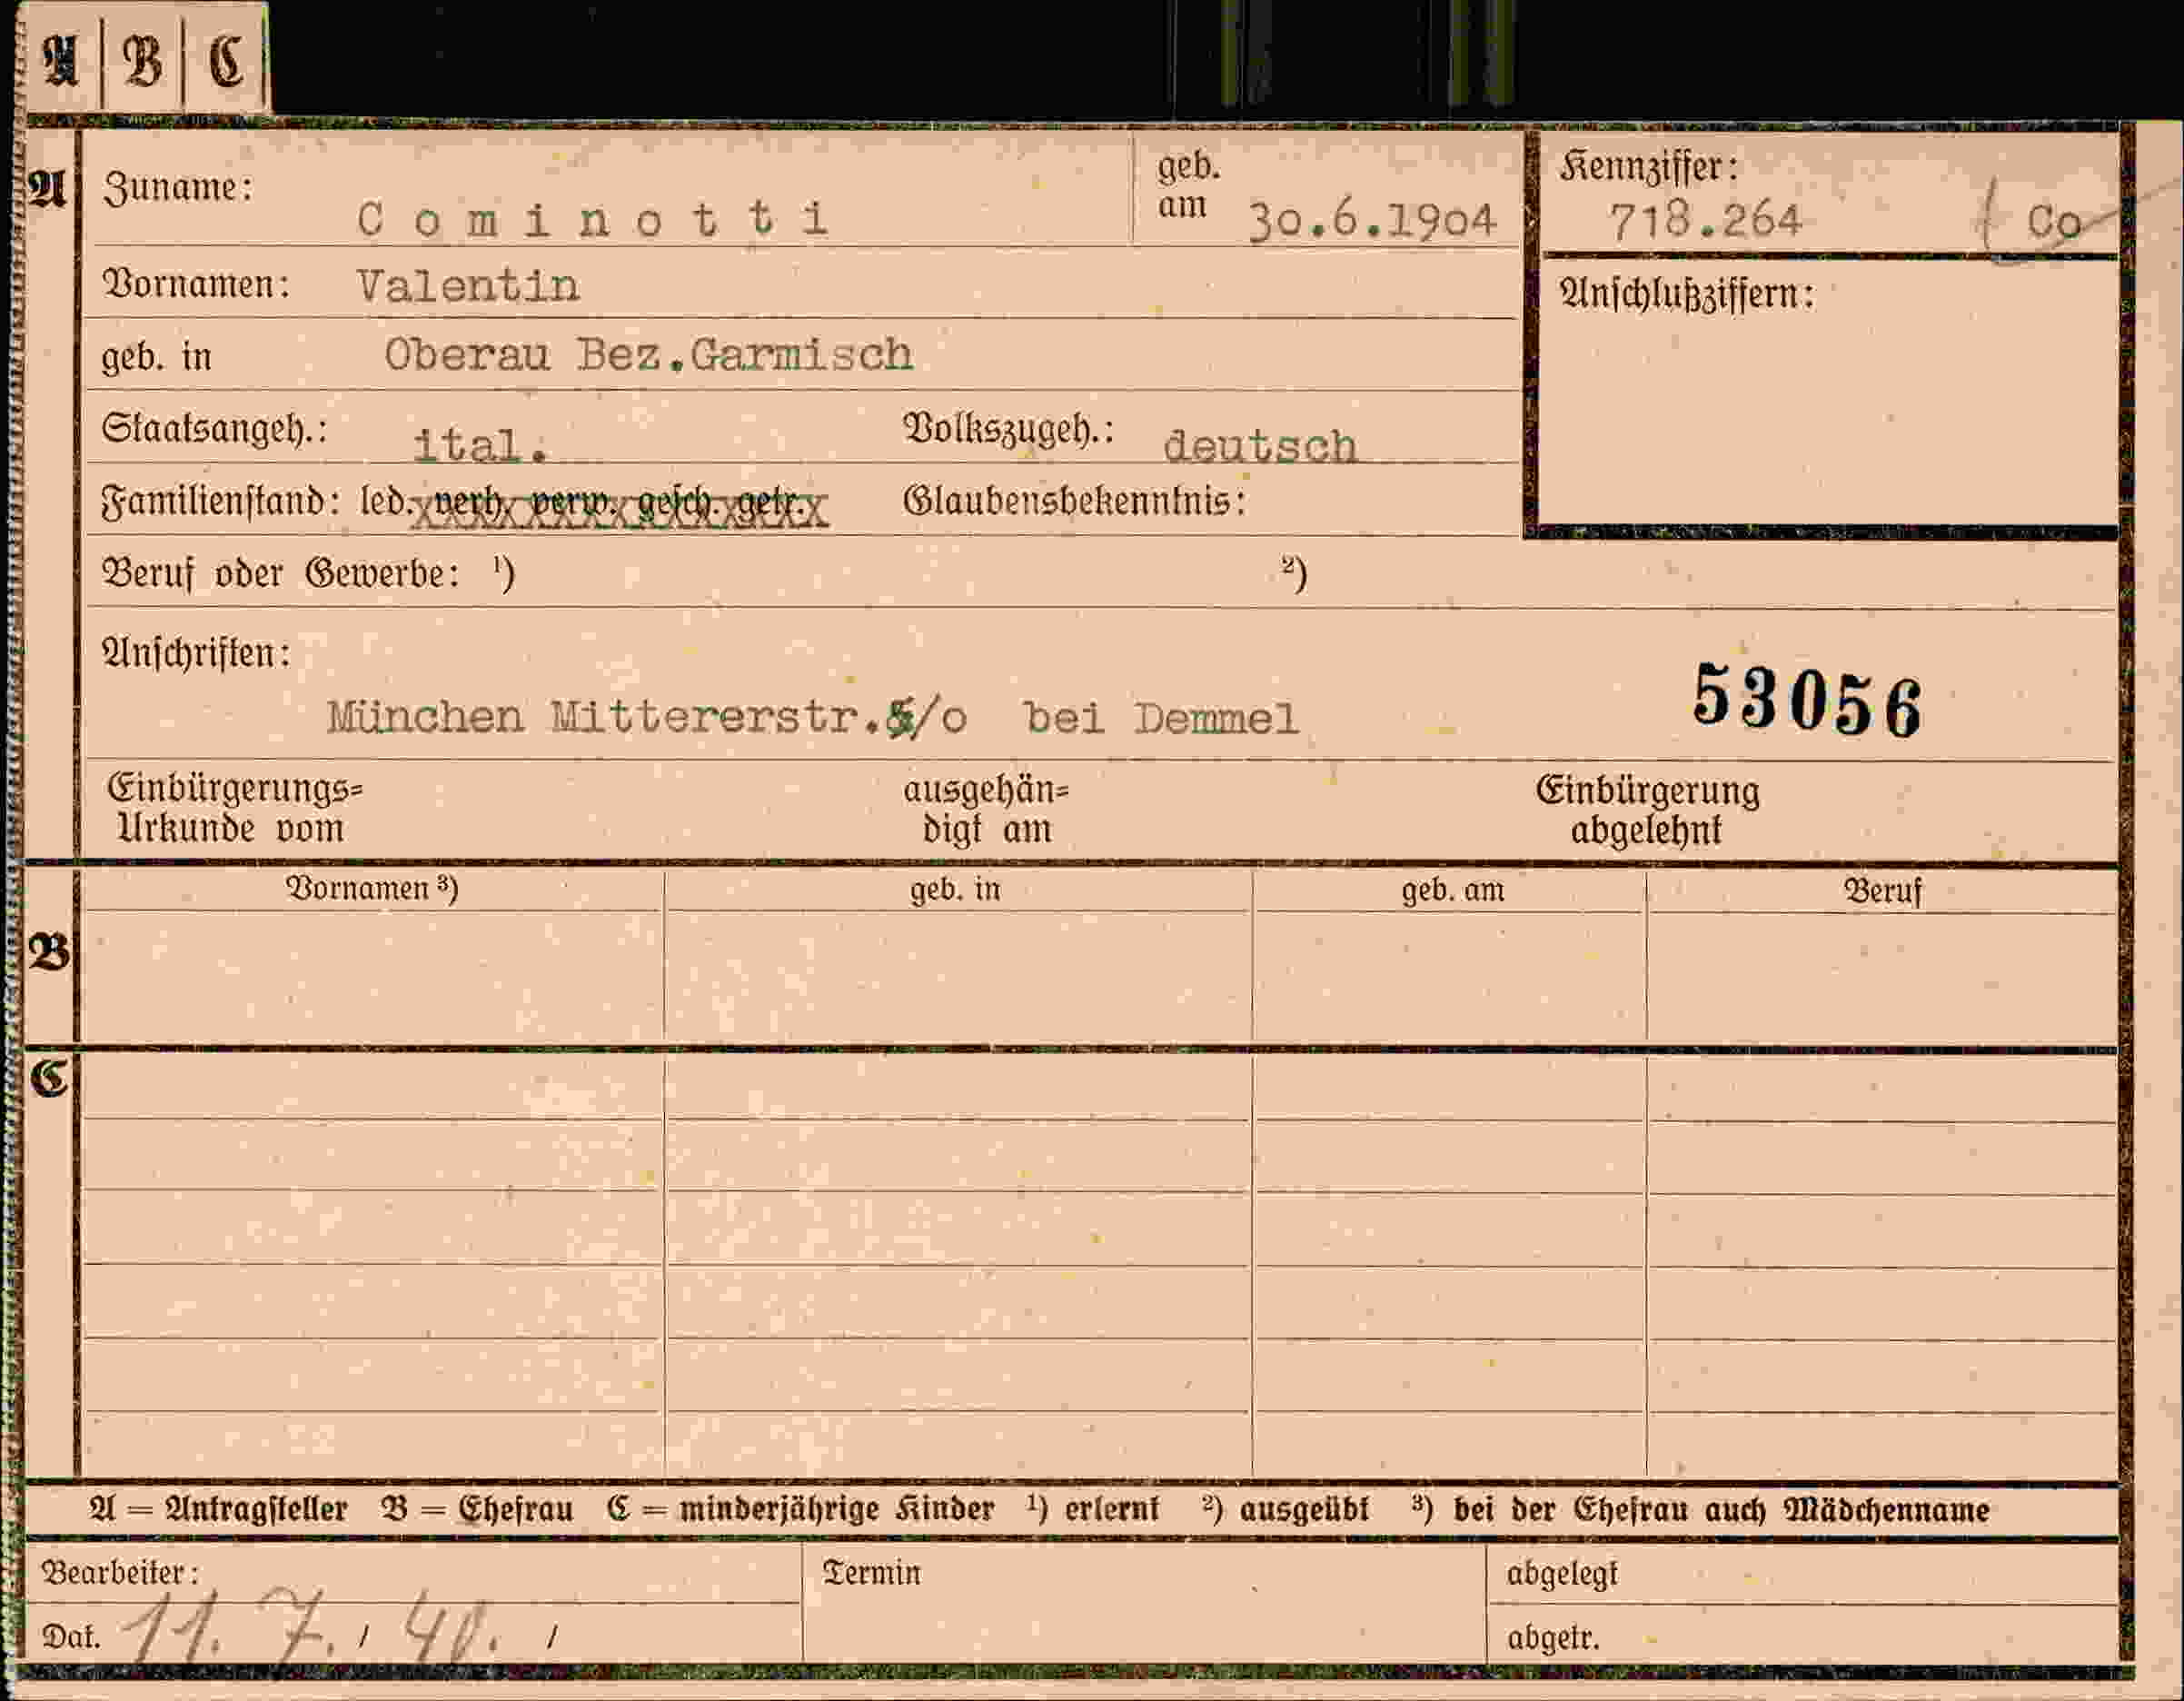 A B C
A Zuname: Cominotti geb. am 30.6.1904 Kennziffer: 718.264 Co
Vornamen: Valentin Anschlußziffern:
geb. in Oberau Bez.Garmisch
Staatsangeh.: ital. Volkszugeh.: deutsch
Familienstand: led. verh. verw. gesch. getr. Glaubensbekenntnis:
Beruf oder Gewerbe: ¹) ²)
Anschriften:
München Mittererstr. /o bei Demmel 53056
Einbürgerungs= ausgehän= Einbürgerung
Urkunde vom digt am abgelehnt
Vornamen ³) geb. in geb. am Beruf
B
C
A = Antragsteller B = Ehefrau C = minderjährige Kinder ¹) erlernt ²) ausgeübt ³) bei der Ehefrau auch Mädchenname
Bearbeiter: Termin abgelegt
Dat. 11. 7. 40. abgetr.